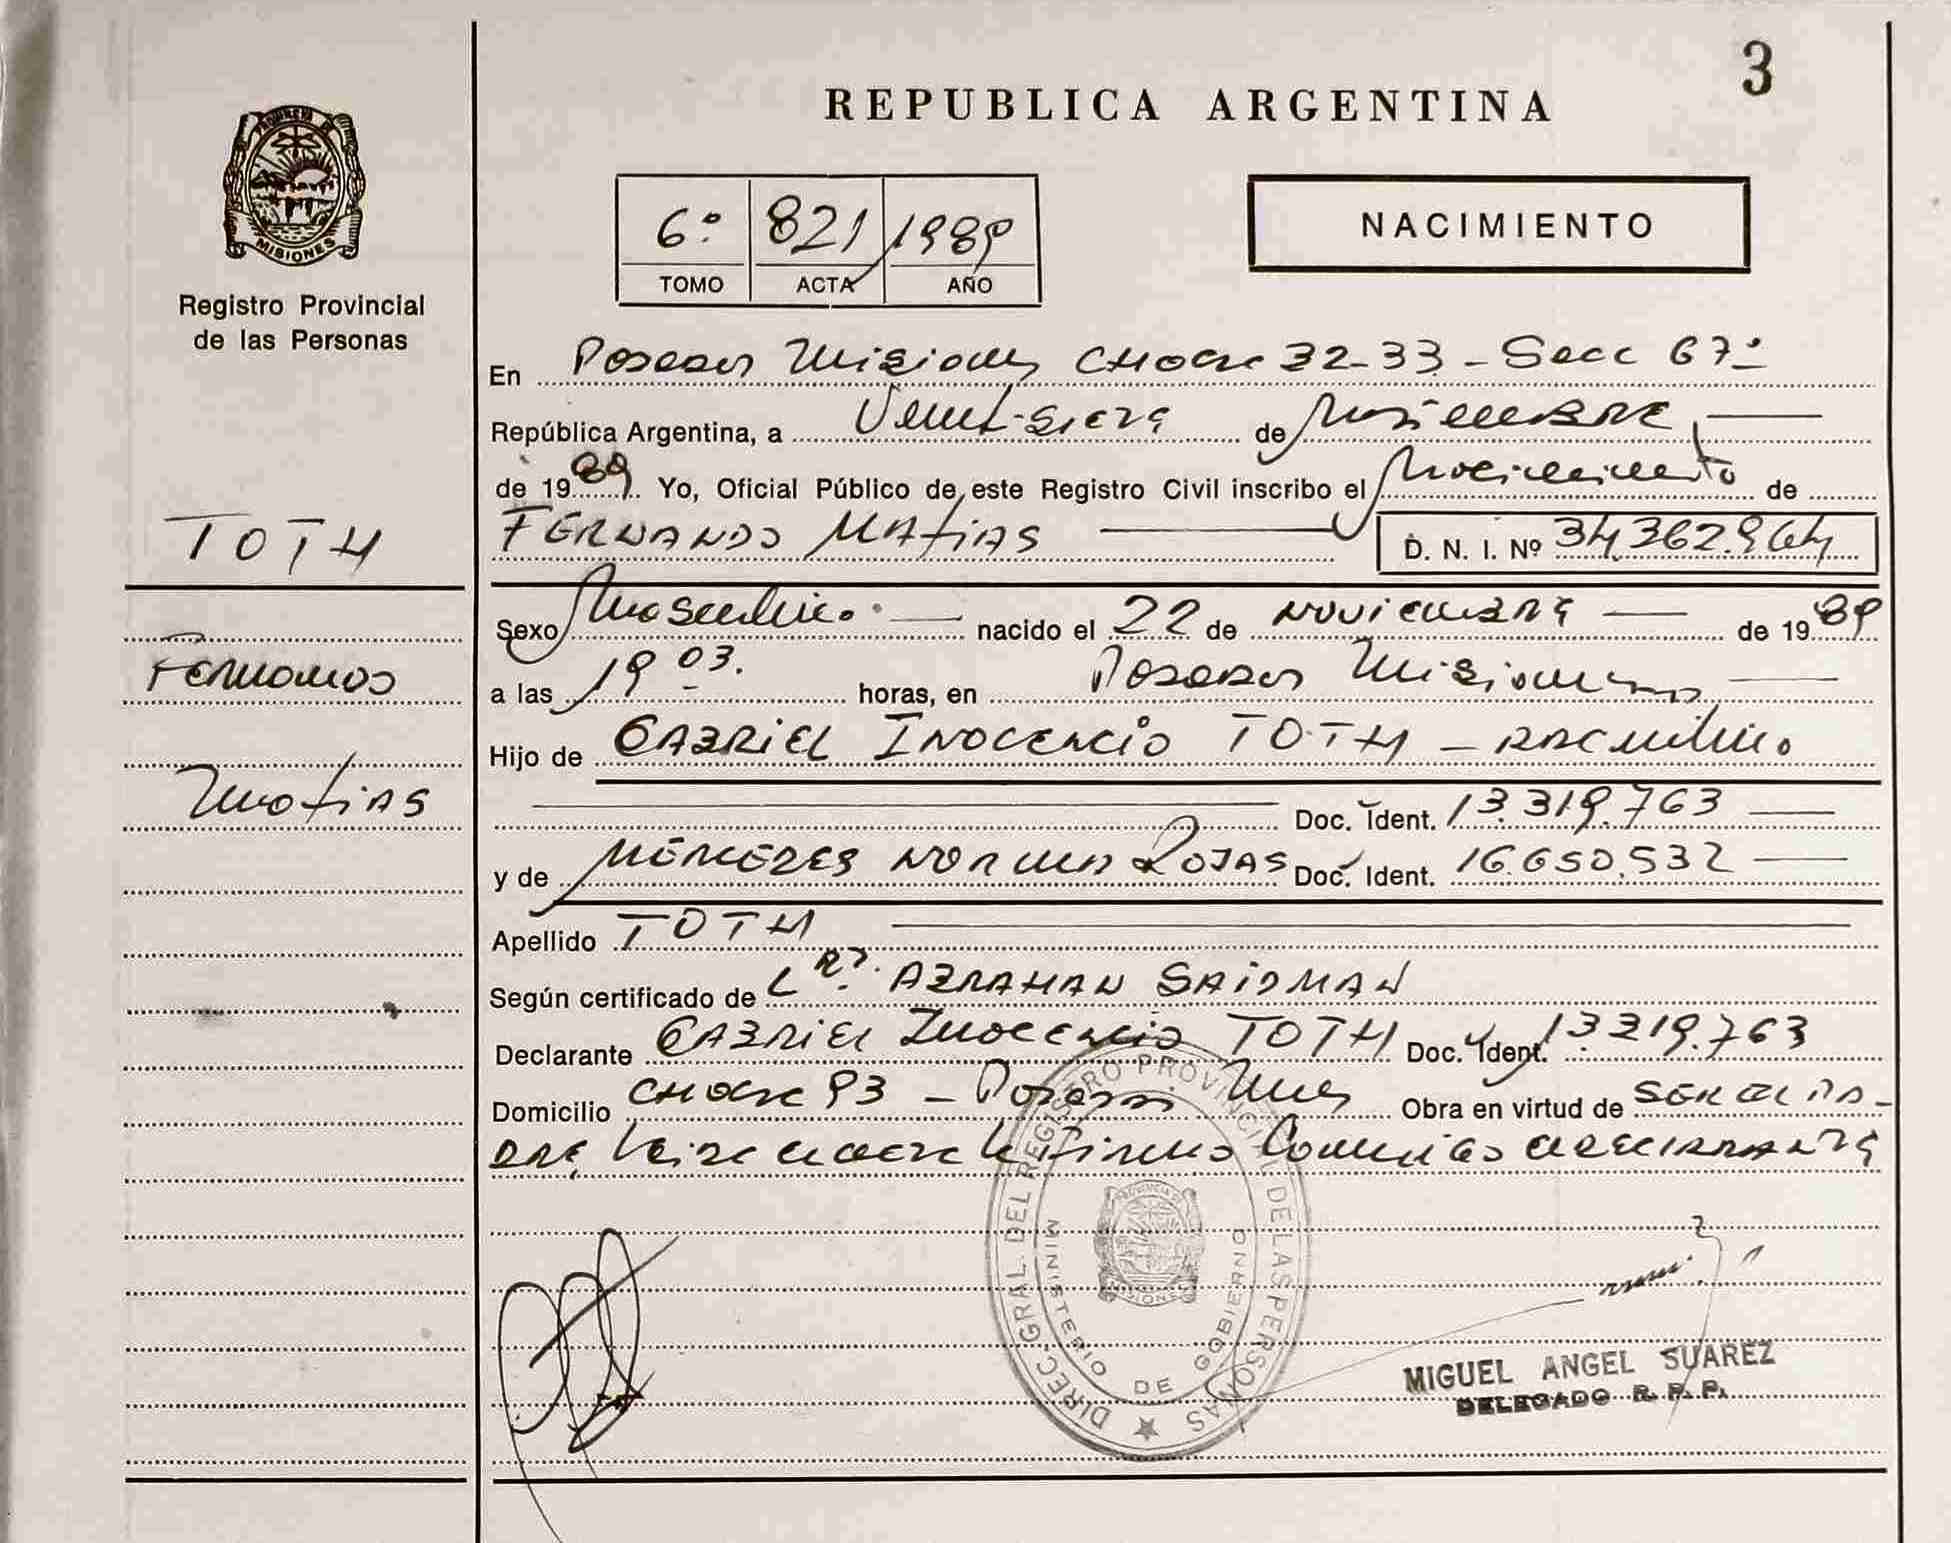 3
REPUBLICA ARGENTINA
PROVINCIA DE
MISIONES
Registro Provincial
de las Personas
6º 821 1989
TOMO ACTA AÑO
NACIMIENTO
En Posadas Misiones CHacra 32-33 - Secc 67ª
República Argentina, a Veintisiete de Noviembre
de 1989. Yo, Oficial Público de este Registro Civil inscribo el Nacimiento de
FERNANDO MAtiAS D. N. I. Nº 34.362.964
TOTH
Fernando
Matias
Sexo Masculino. nacido el 22 de Noviembre de 1989
a las 19 03. horas, en Posadas Misiones
Hijo de GABRIEL INOCENCIO TOTH - Argentino
Doc. Ident. 13.319.763
y de MERCEDES NORMA ROJAS Doc. Ident. 16.650.532
Apellido TOTH
Según certificado de ABRAHAN SAIDMAN
Declarante GABRIEL INOCENCIO TOTH Doc. Ident. 13.319.763
Domicilio CHacra 93 - Posadas Mnes Obra en virtud de SER EL PA-
DRE
DIREC. GRAL. DEL REGISTRO PROVINCIAL DE LAS PERSONAS
MINISTERIO DE GOBIERNO
MIGUEL ANGEL SUAREZ
DELEGADO R. P. P.